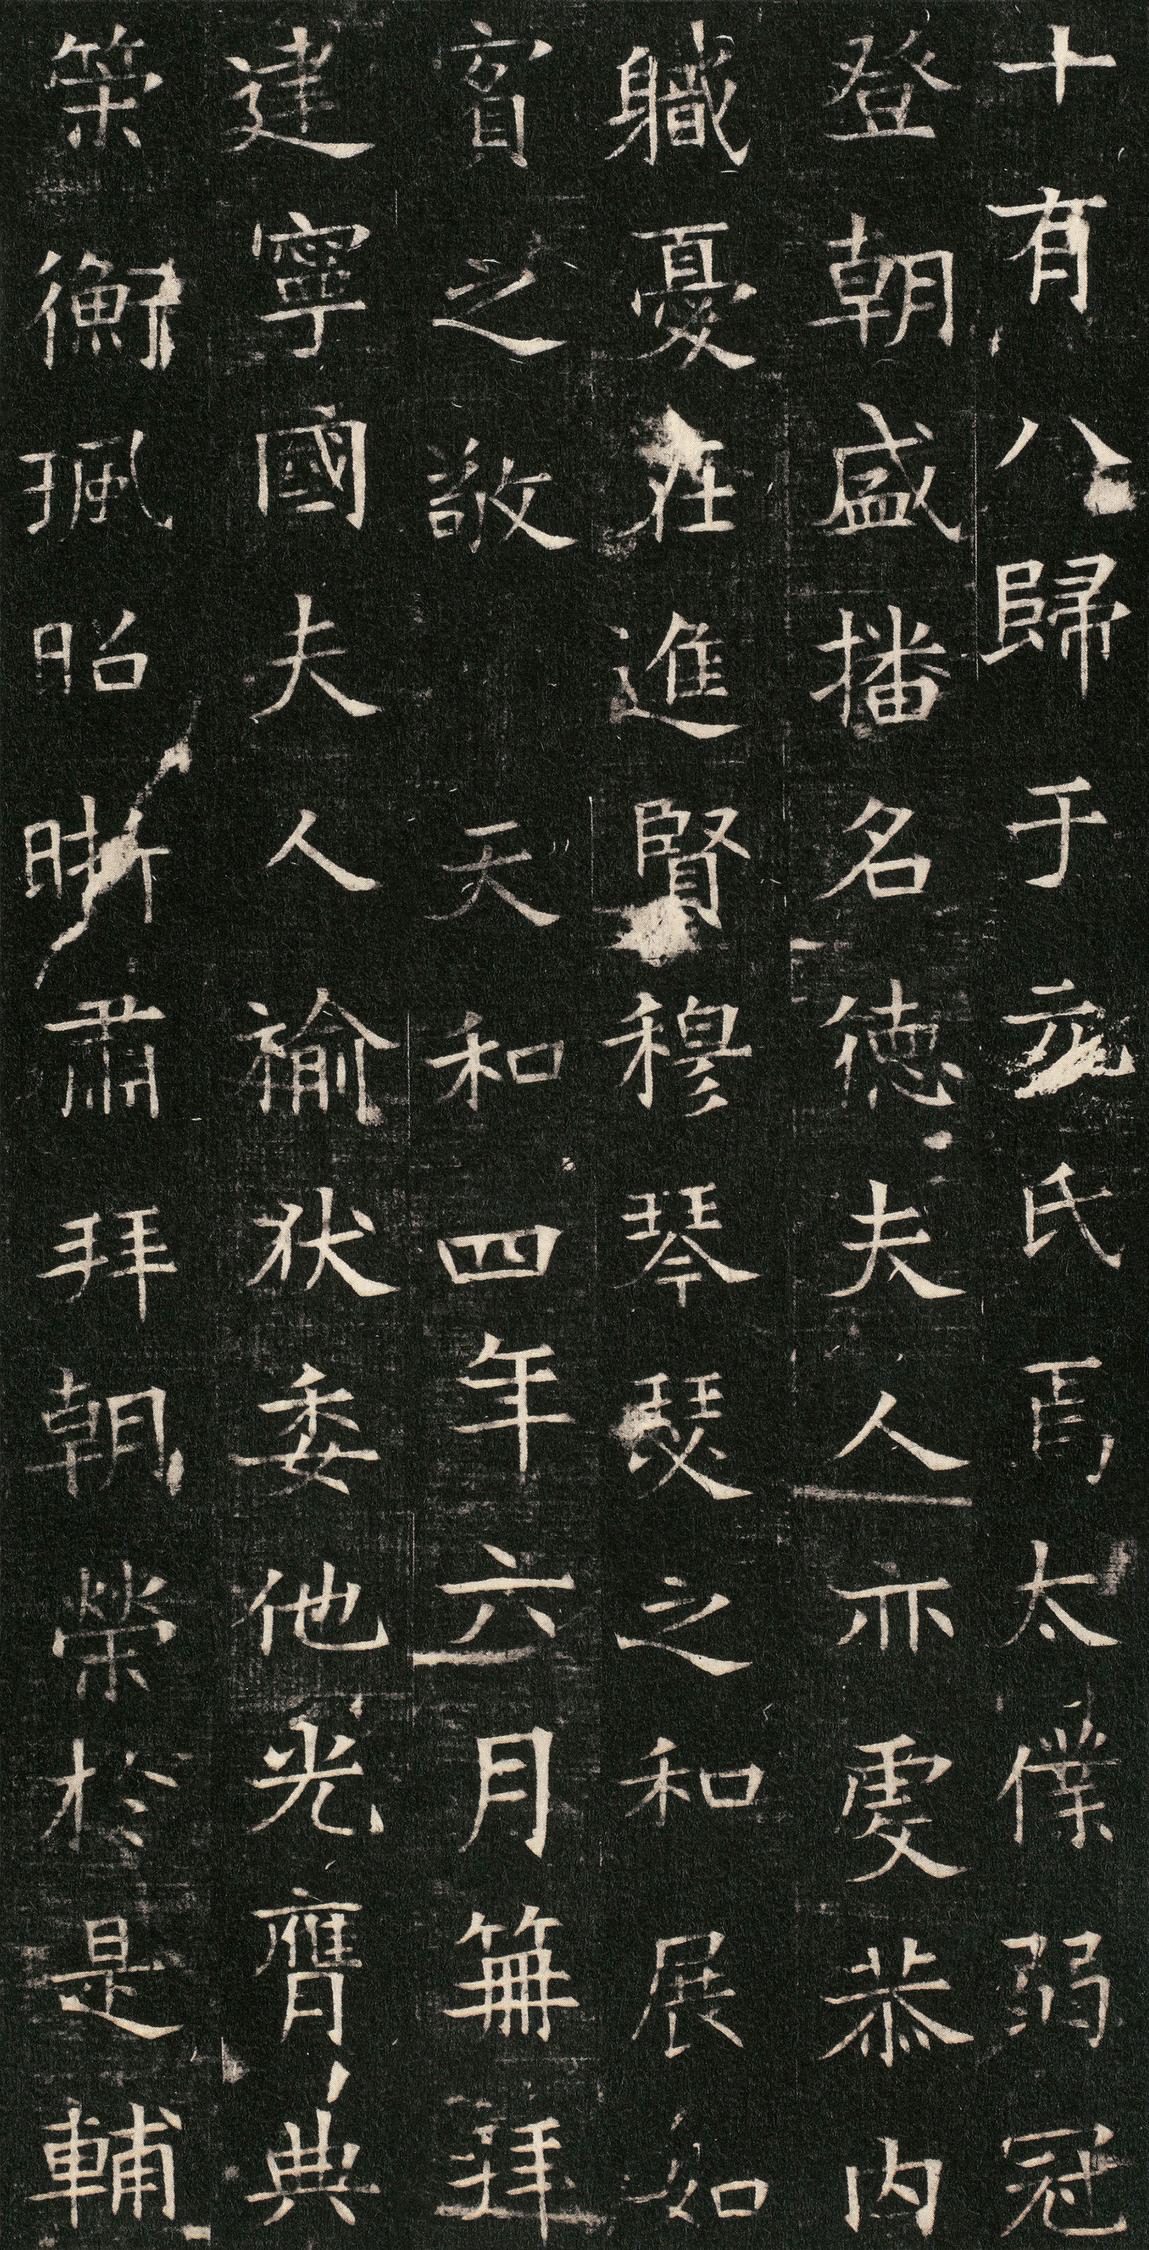 十有八歸于元氏焉太僕弱冠
登朝盛播名德夫人亦虔恭內
職憂在進賢穆琴瑟之和展如
賓之敬 天和四年六月笧拜
建寧國夫人褕狄委他光膺典
策衡珮昭晣肅拜朝榮於是輔